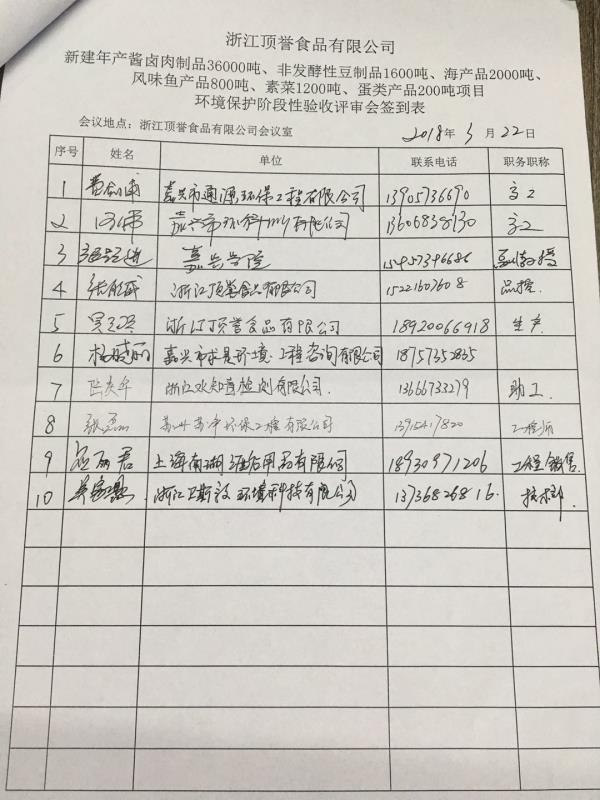 浙江顶誉食品有限公司
新建年产酱卤肉制品36000吨、非发酵性豆制品1600吨、海产品2000吨、
风味鱼产品800吨、素菜1200吨、蛋类产品200吨项目
环境保护阶段性验收评审会签到表
会议地点：浙江顶誉食品有限公司会议室 2018年3月22日
序号 姓名 单位 联系电话 职务职称
1 嘉兴市通源环保工程有限公司 13905736690 高工
2 嘉兴市环科 有限公司 13606838130 高工
3 嘉兴学院 15457396686 副教授
4 浙江顶誉食品有限公司 15221607608 品控
5 浙江顶誉食品有限公司 18920066918 生产
6 杨晓丽 嘉兴市求是环境工程咨询有限公司 18757352835
7 陆庆年 浙江水知音检测有限公司 13666733279 助工
8 张磊 苏州苏净环保工程有限公司 13915417820 工程师
9 丽君 上海南湖 有限公司 18930971206 工程销售
10 浙江卫斯敦环境科技有限公司 13736826816 技术部